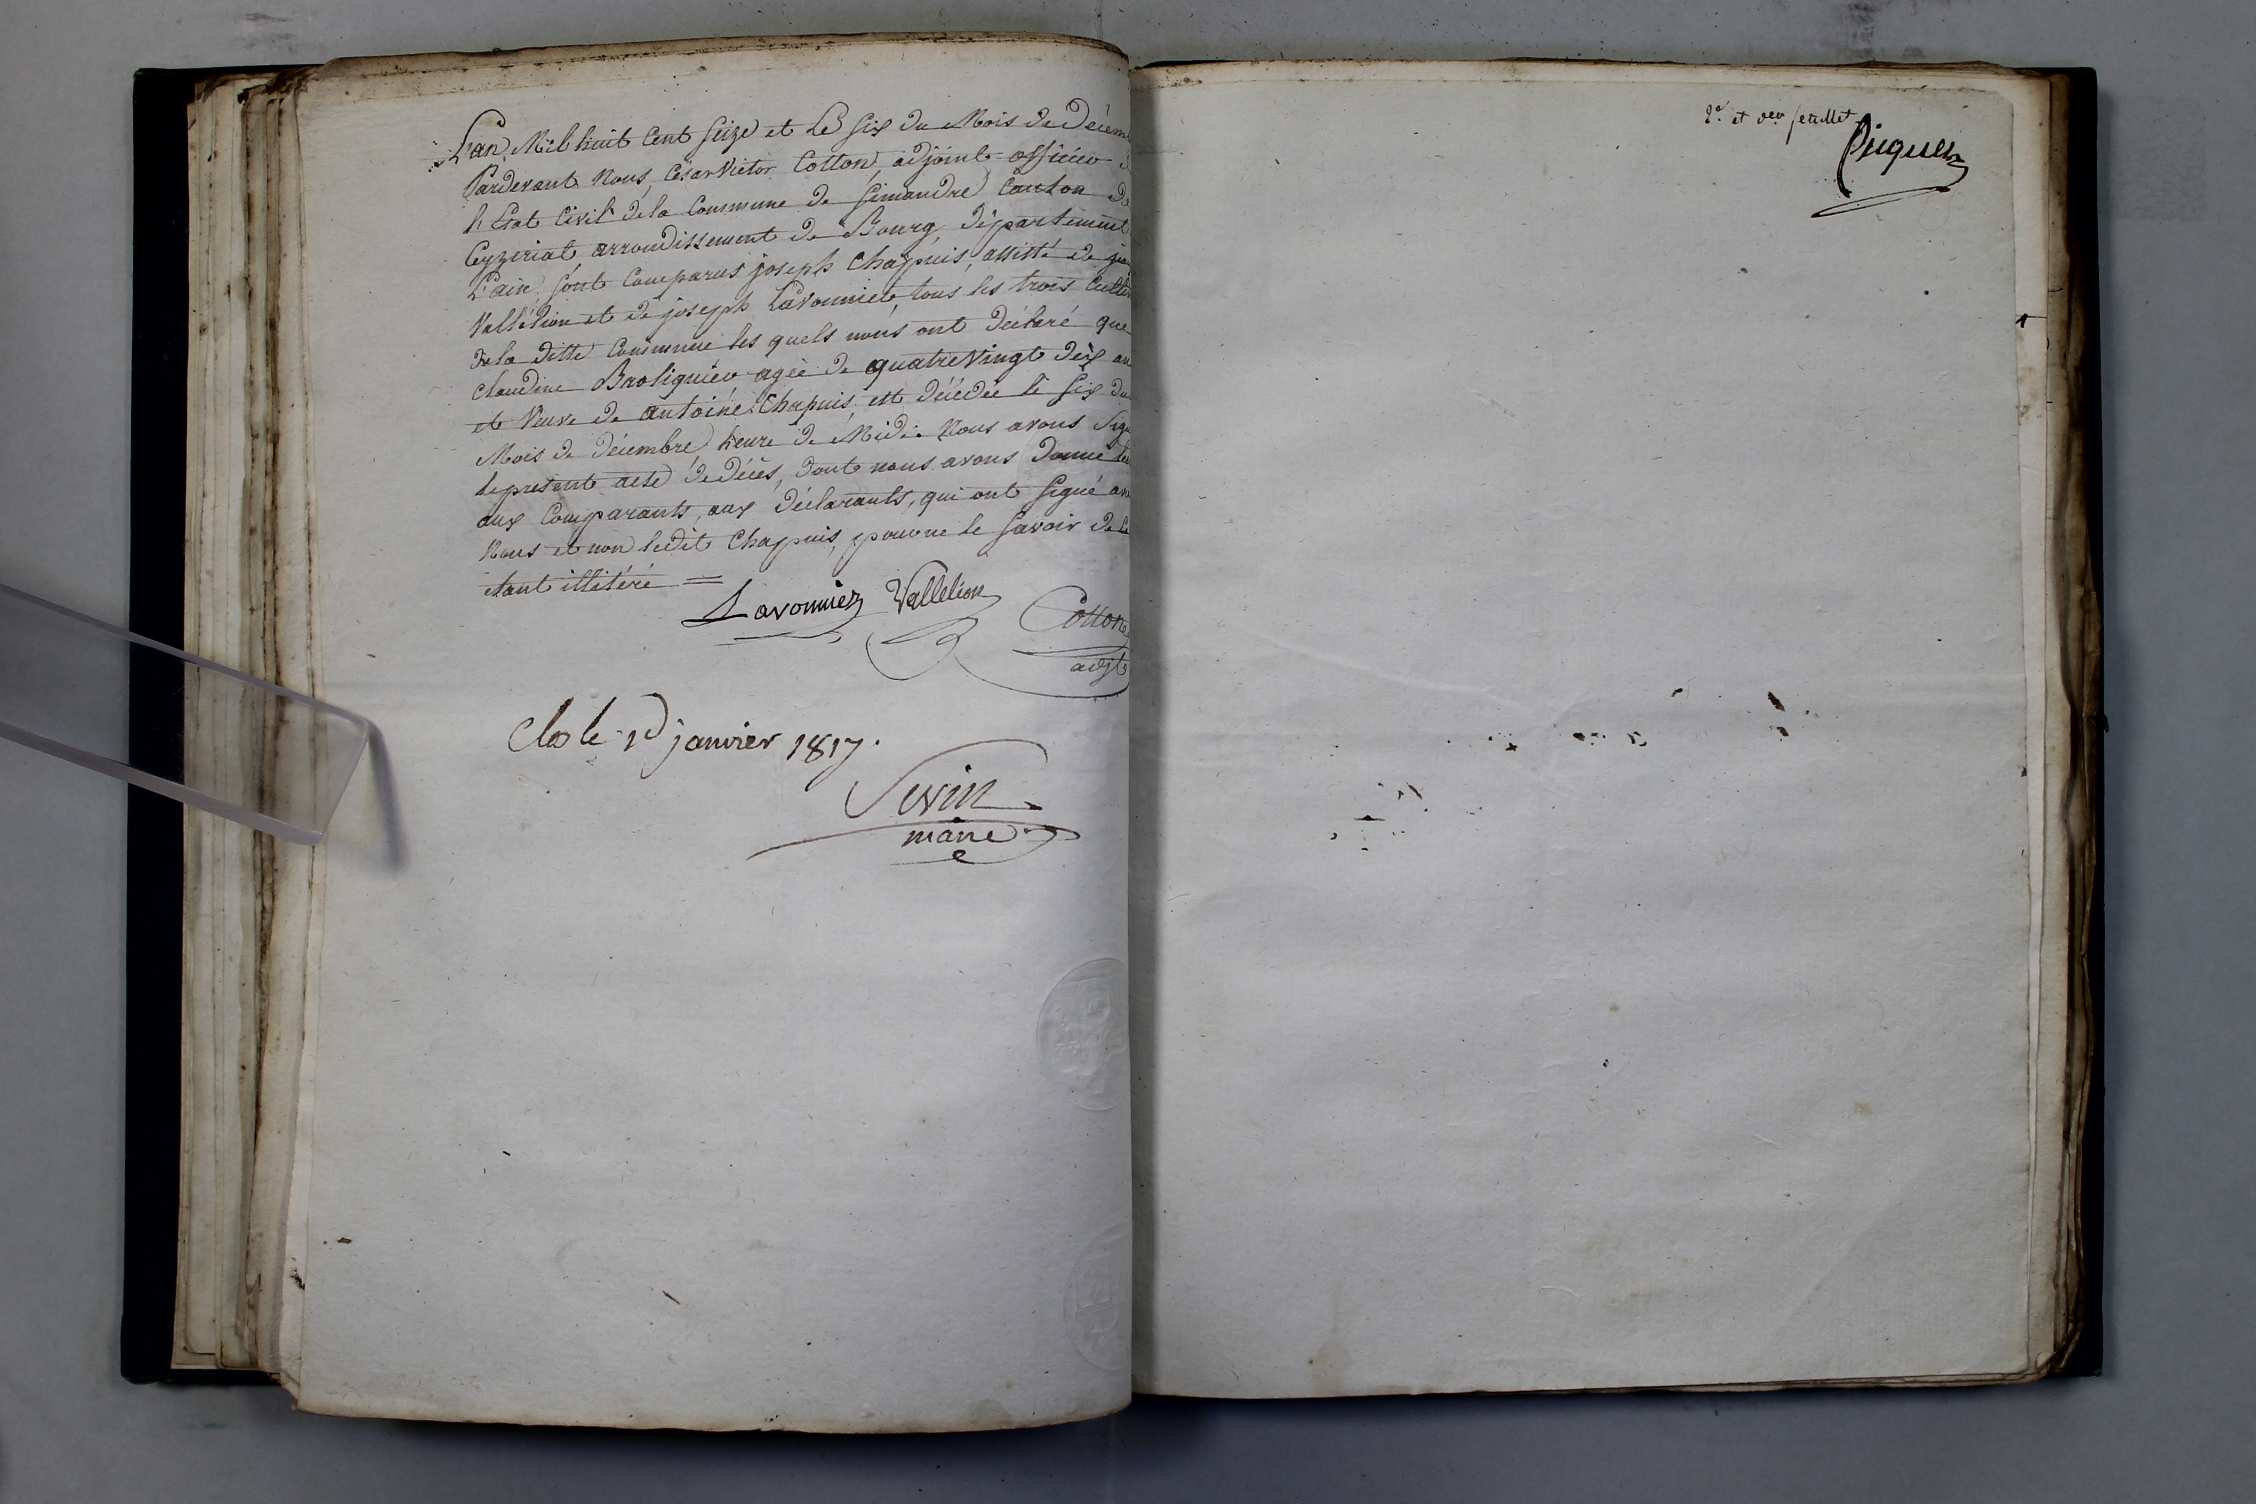 L'an Mil huit Cent Seize et le Six du Mois de Décem
Pardevant Nous, César Victor Cotton, adjoint officier
l'Etat Civil de la Commune de Simandre Canton de
Ceyzeriat arrondissement de Bourg, département
L'ain, sont Comparus joseph Chapuis, assisté de
Vallélion et de joseph Lavonnier, tous les trois Cultiv
de la ditte Commune les quels nous ont déclaré que
Claudine agée de quatre vingt dix an
et Veuve de antoine Chapuis, est décédée le Six du
Mois de décembre heure de Midi. Nous avons Sign
le présent acte de décès, dont nous avons donné lec
aux Comparants, aux déclarants, qui ont signé av
Nous et non ledit Chapuis, pour ne le savoir de
étant illitéré =
Lavonniez Vallélion Cotton
adjt
Clos le 1er janvier 1817.
Sevin
maire
2e et der feuillet